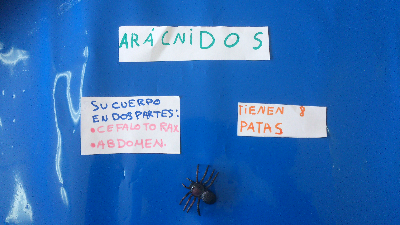 ARÁCNIDOS
SU CUERPO
EN DOS PARTES:
• CEFALOTORAX
• ABDOMEN.
TIENEN 8
PATAS